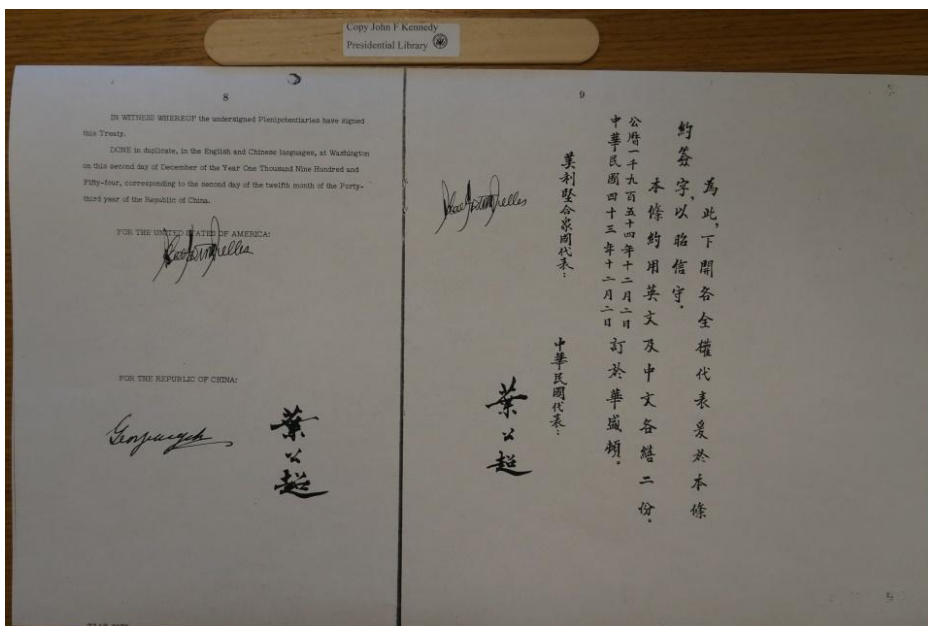 Copy John F Kennedy
Presidential Library
8
IN WITNESS WHEREOF the undersigned Plenipotentiaries have signed
this Treaty.
DONE in duplicate, in the English and Chinese languages, at Washington
on this second day of December of the Year One Thousand Nine Hundred and
Fifty-four, corresponding to the second day of the twelfth month of the Forty-
third year of the Republic of China.
FOR THE UNITED STATES OF AMERICA:
FOR THE REPUBLIC OF CHINA:
葉公超
9
為此,下開各全權代表爰於本條
約簽字,以昭信守.
本條約用英文及中文各繕二份.
公曆一千九百五十四年十二月二日
中華民國四十三年十二月二日
訂於華盛頓.
美利堅合眾國代表:
中華民國代表:
葉公超